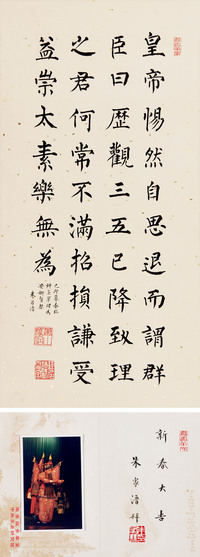 皇帝惕然自思退而謂群
臣曰歷觀三五已降致理
之君何常不滿招損謙受
益崇太素樂無為
朱家溍
新春大吉
朱家溍拜